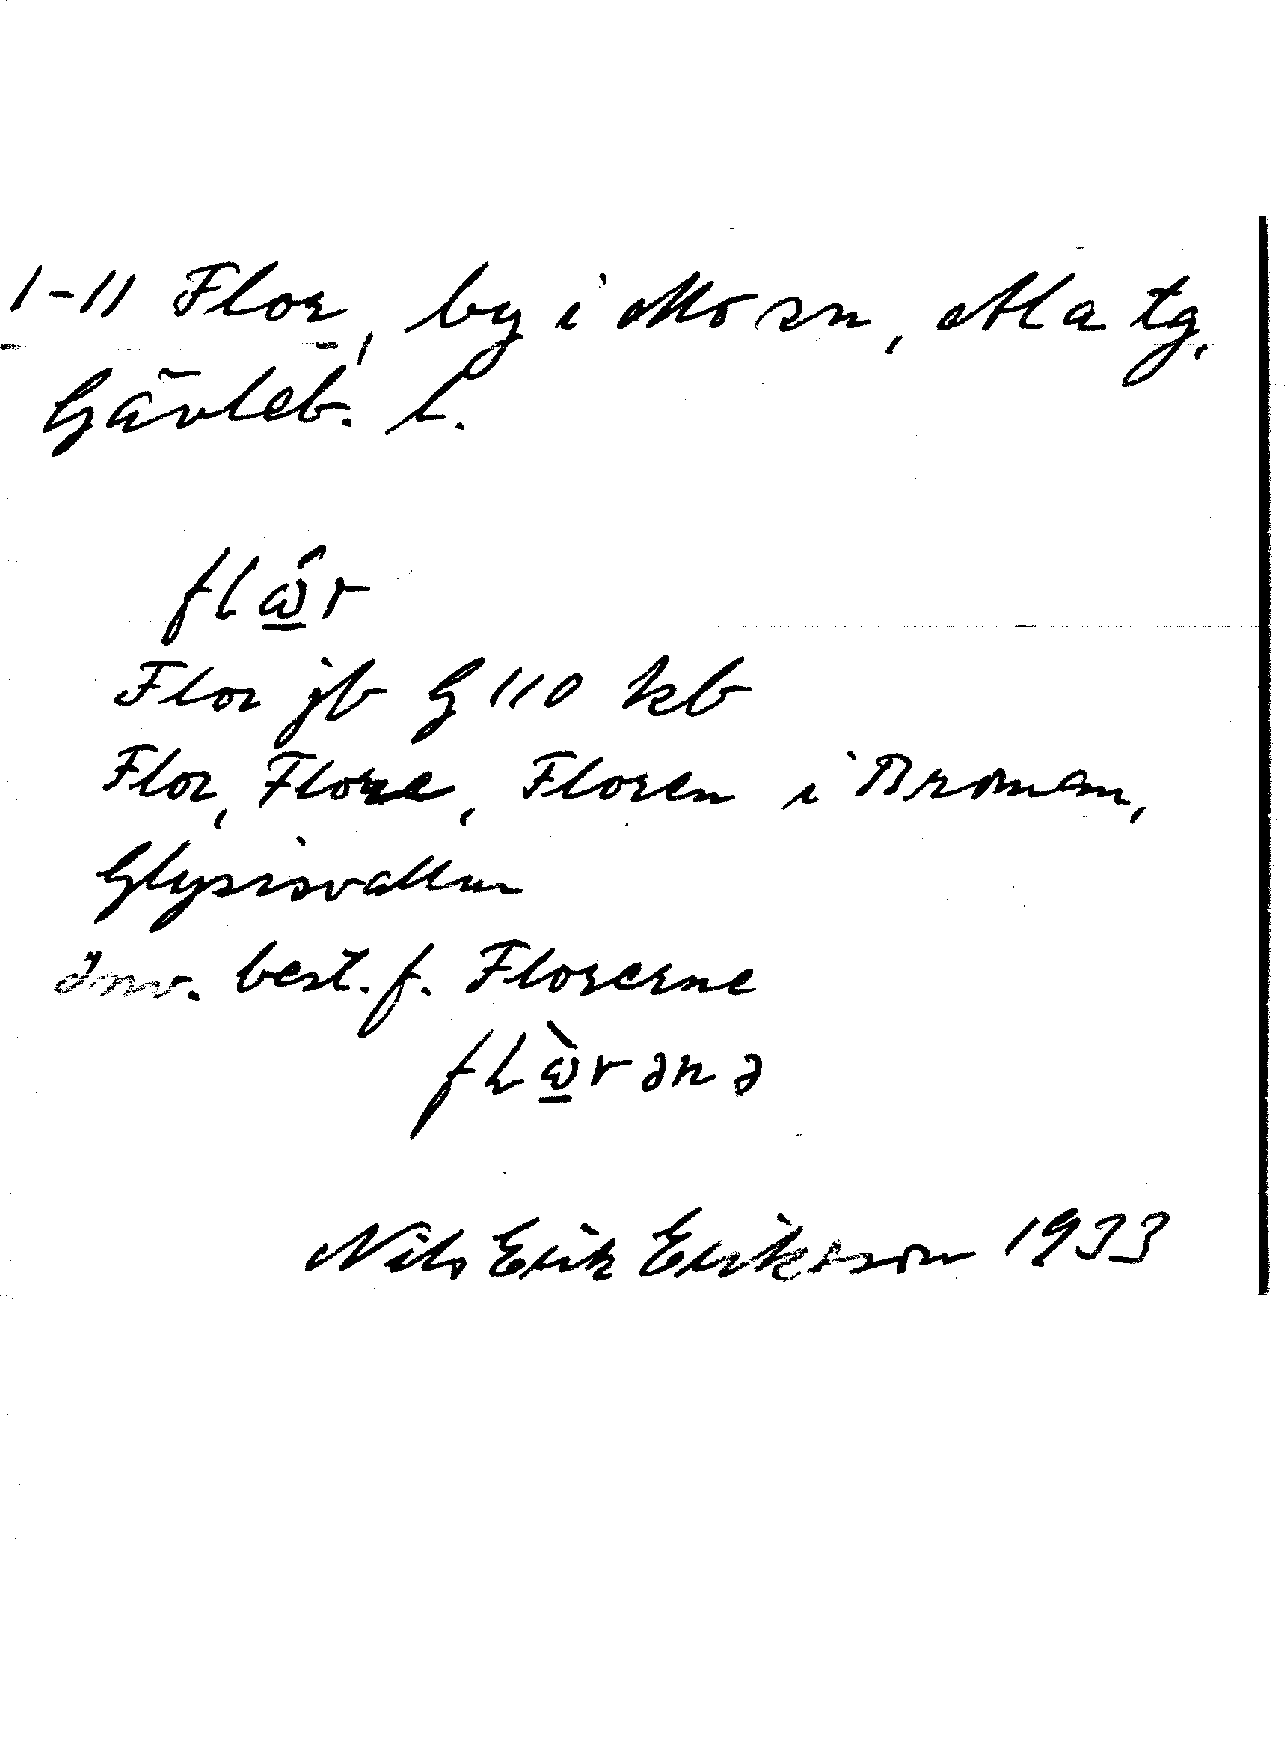 1-11 Flor, by i Mo sn, Ala tg,
Gävleb. l.
flώ̲r
Flor jb G 110 kb
Flor, Flore, Floren i Broman,
Glysisvallur
Inv. best. f. Florerne
flὼ̲rənə
Nils Erik Eriksson 1933